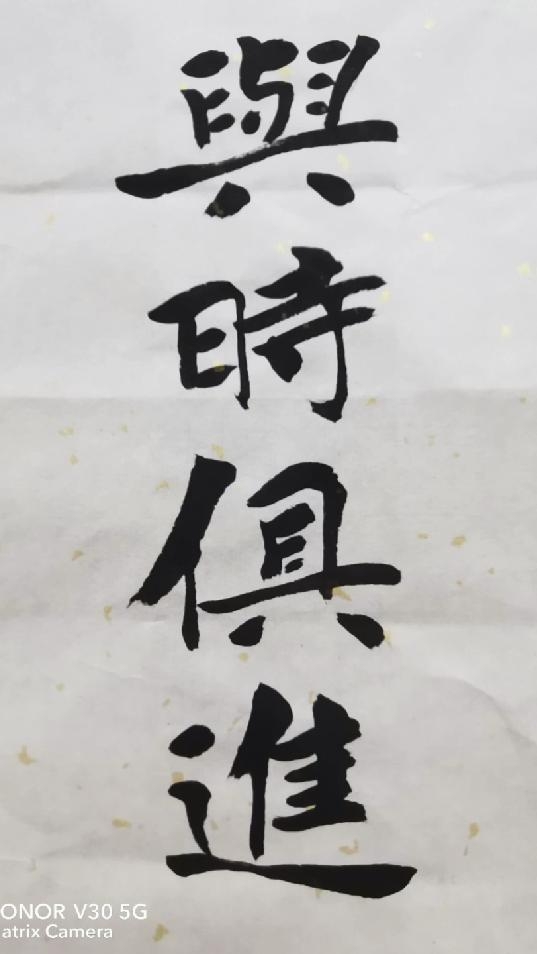 與時俱進
ONOR V30 5G
atrix Camera